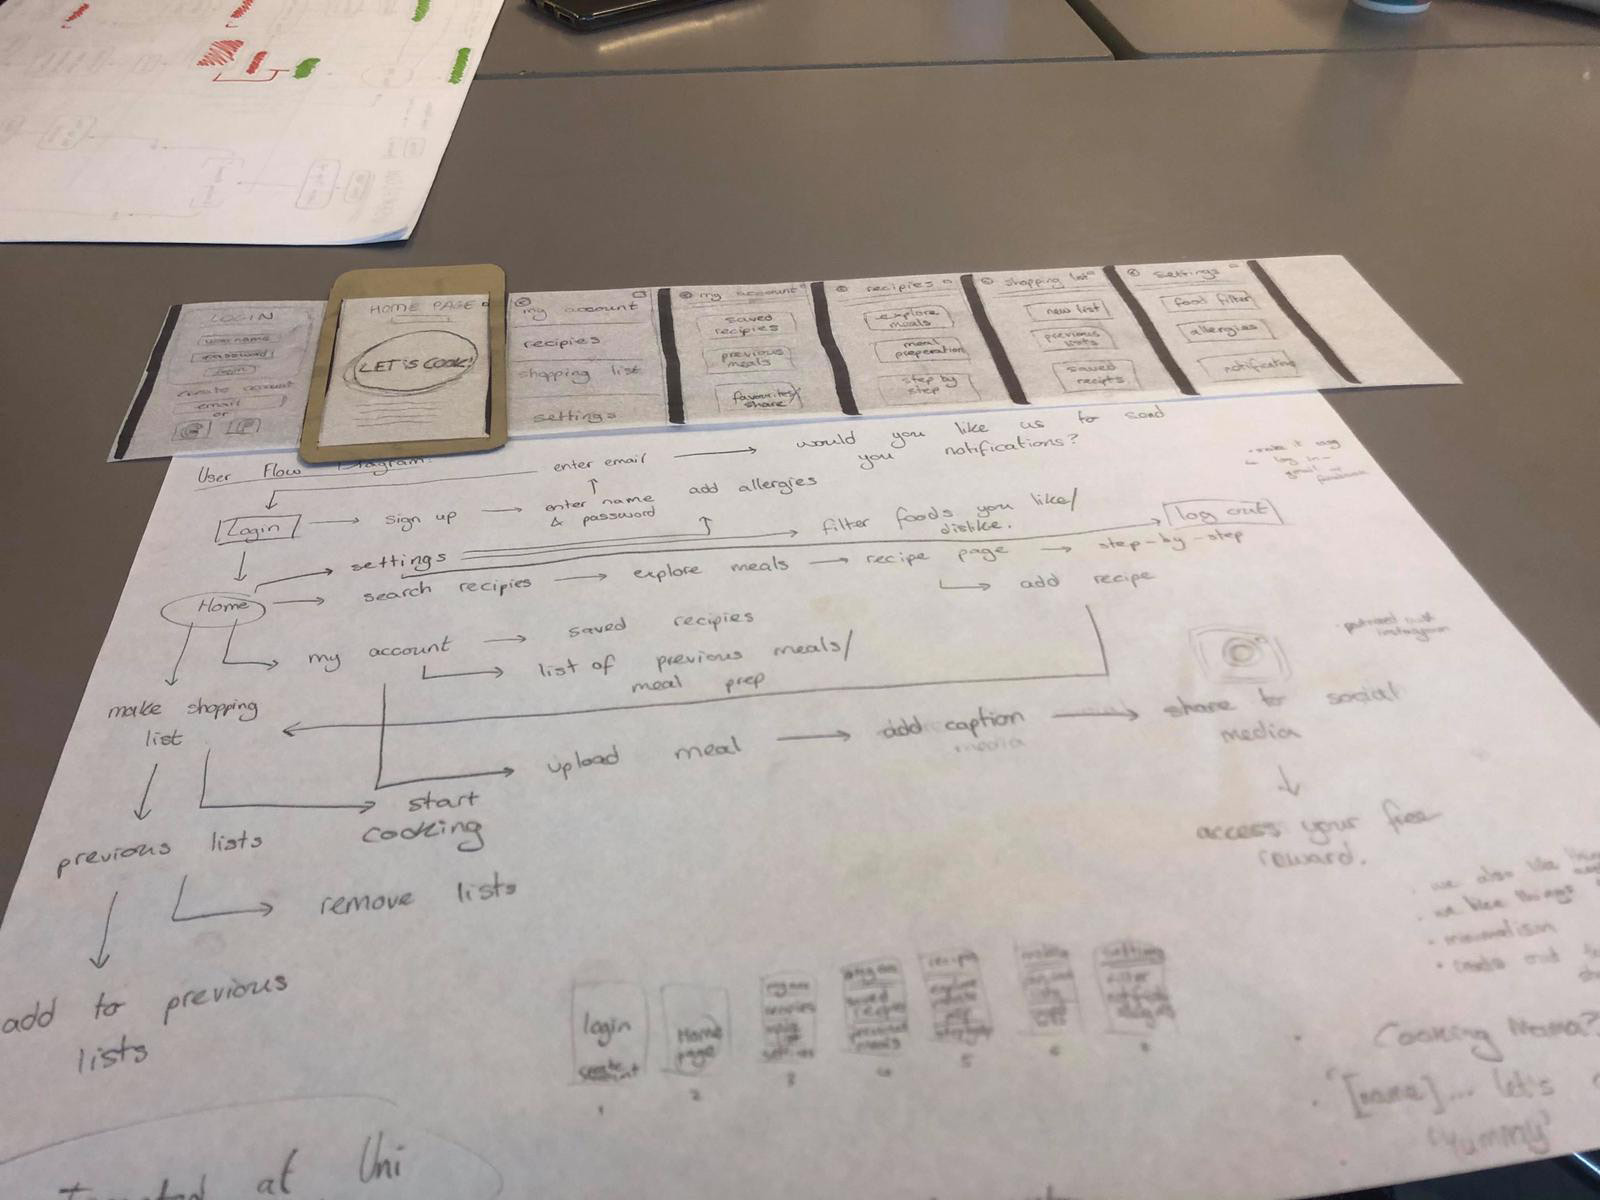 LOGIN
username
password
login
create account
email
or
HOME PAGE
LET'S COOK!
my account
recipies
shopping list
settings
my account
saved
recipies
previous
meals
favourites/
share
recipies
explore
meals
meal
preperation
step by
step
shopping list
new list
previous
lists
saved
recipts
settings
food filter
allergies
notifications
User Flow Diagram:
enter email
would you like us to send
you notifications?
Login
sign up
enter name
& password
add allergies
filter foods you like/
dislike.
log out
settings
search recipies
explore meals
recipe page
step-by-step
add recipe
Home
my account
saved recipies
list of previous meals/
meal prep
make shopping
list
upload meal
add caption
media
share to social
media
start
cooking
access your free
reward.
previous lists
remove lists
add to previous
lists
login
create
1
Home
page
2
3
5
we also like
we like things
minimalism
Cooking Mama?
[name]... let's
'yummy'
at Uni